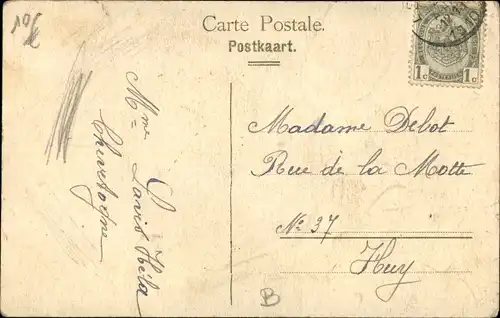 Carte Postale.
Postkaart.
1c 1c
Mme Louis Héla
Chevetogne
Madame Debot
Rue de la Motte
No 37
Huy
B